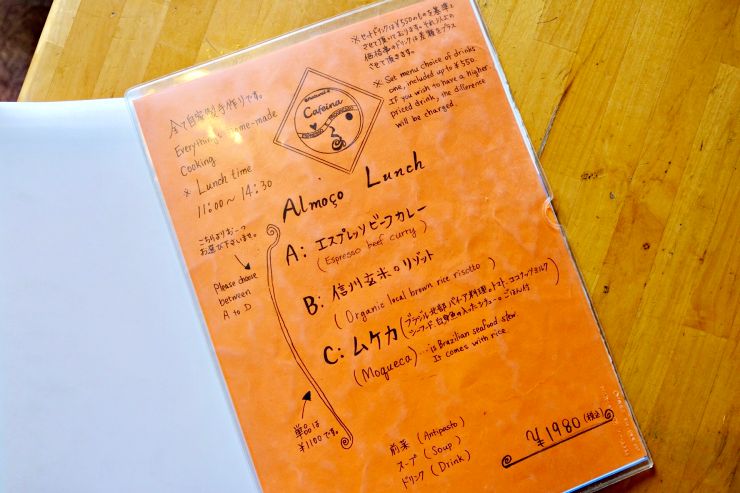 ※セットドリンクは¥550のものを基準と
させて頂いております。それ以上の
価格帯のドリンクは差額をプラス
させて頂きます。
※ Set menu choice of drinks
one, included up to ¥550
If you wish to have a higher
priced drink, the difference
will be charged.
Cafeina
全て自家製手作りです。
Everything home-made
Cooking
※ Lunch time
11:00~14:30
Almoço Lunch
こちらより お一つ
お選び下さいませ。
Please choose
between
A to D
A: エスプレッソビーフカレー
(Espresso beef curry)
B: 信州玄米のリゾット
(Organic local brown rice risotto)
C: ムケカ(ブラジル北部バイーア料理。トマト、ココナッツミルク
シーフード、白身魚の入ったシチュー。ごはん付)
(Moqueca) ...is Brazilian seafood stew
It comes with rice
単品は
¥1100です。
前菜 (Antipasto)
スープ (Soup)
ドリンク (Drink)
¥1980(税込)